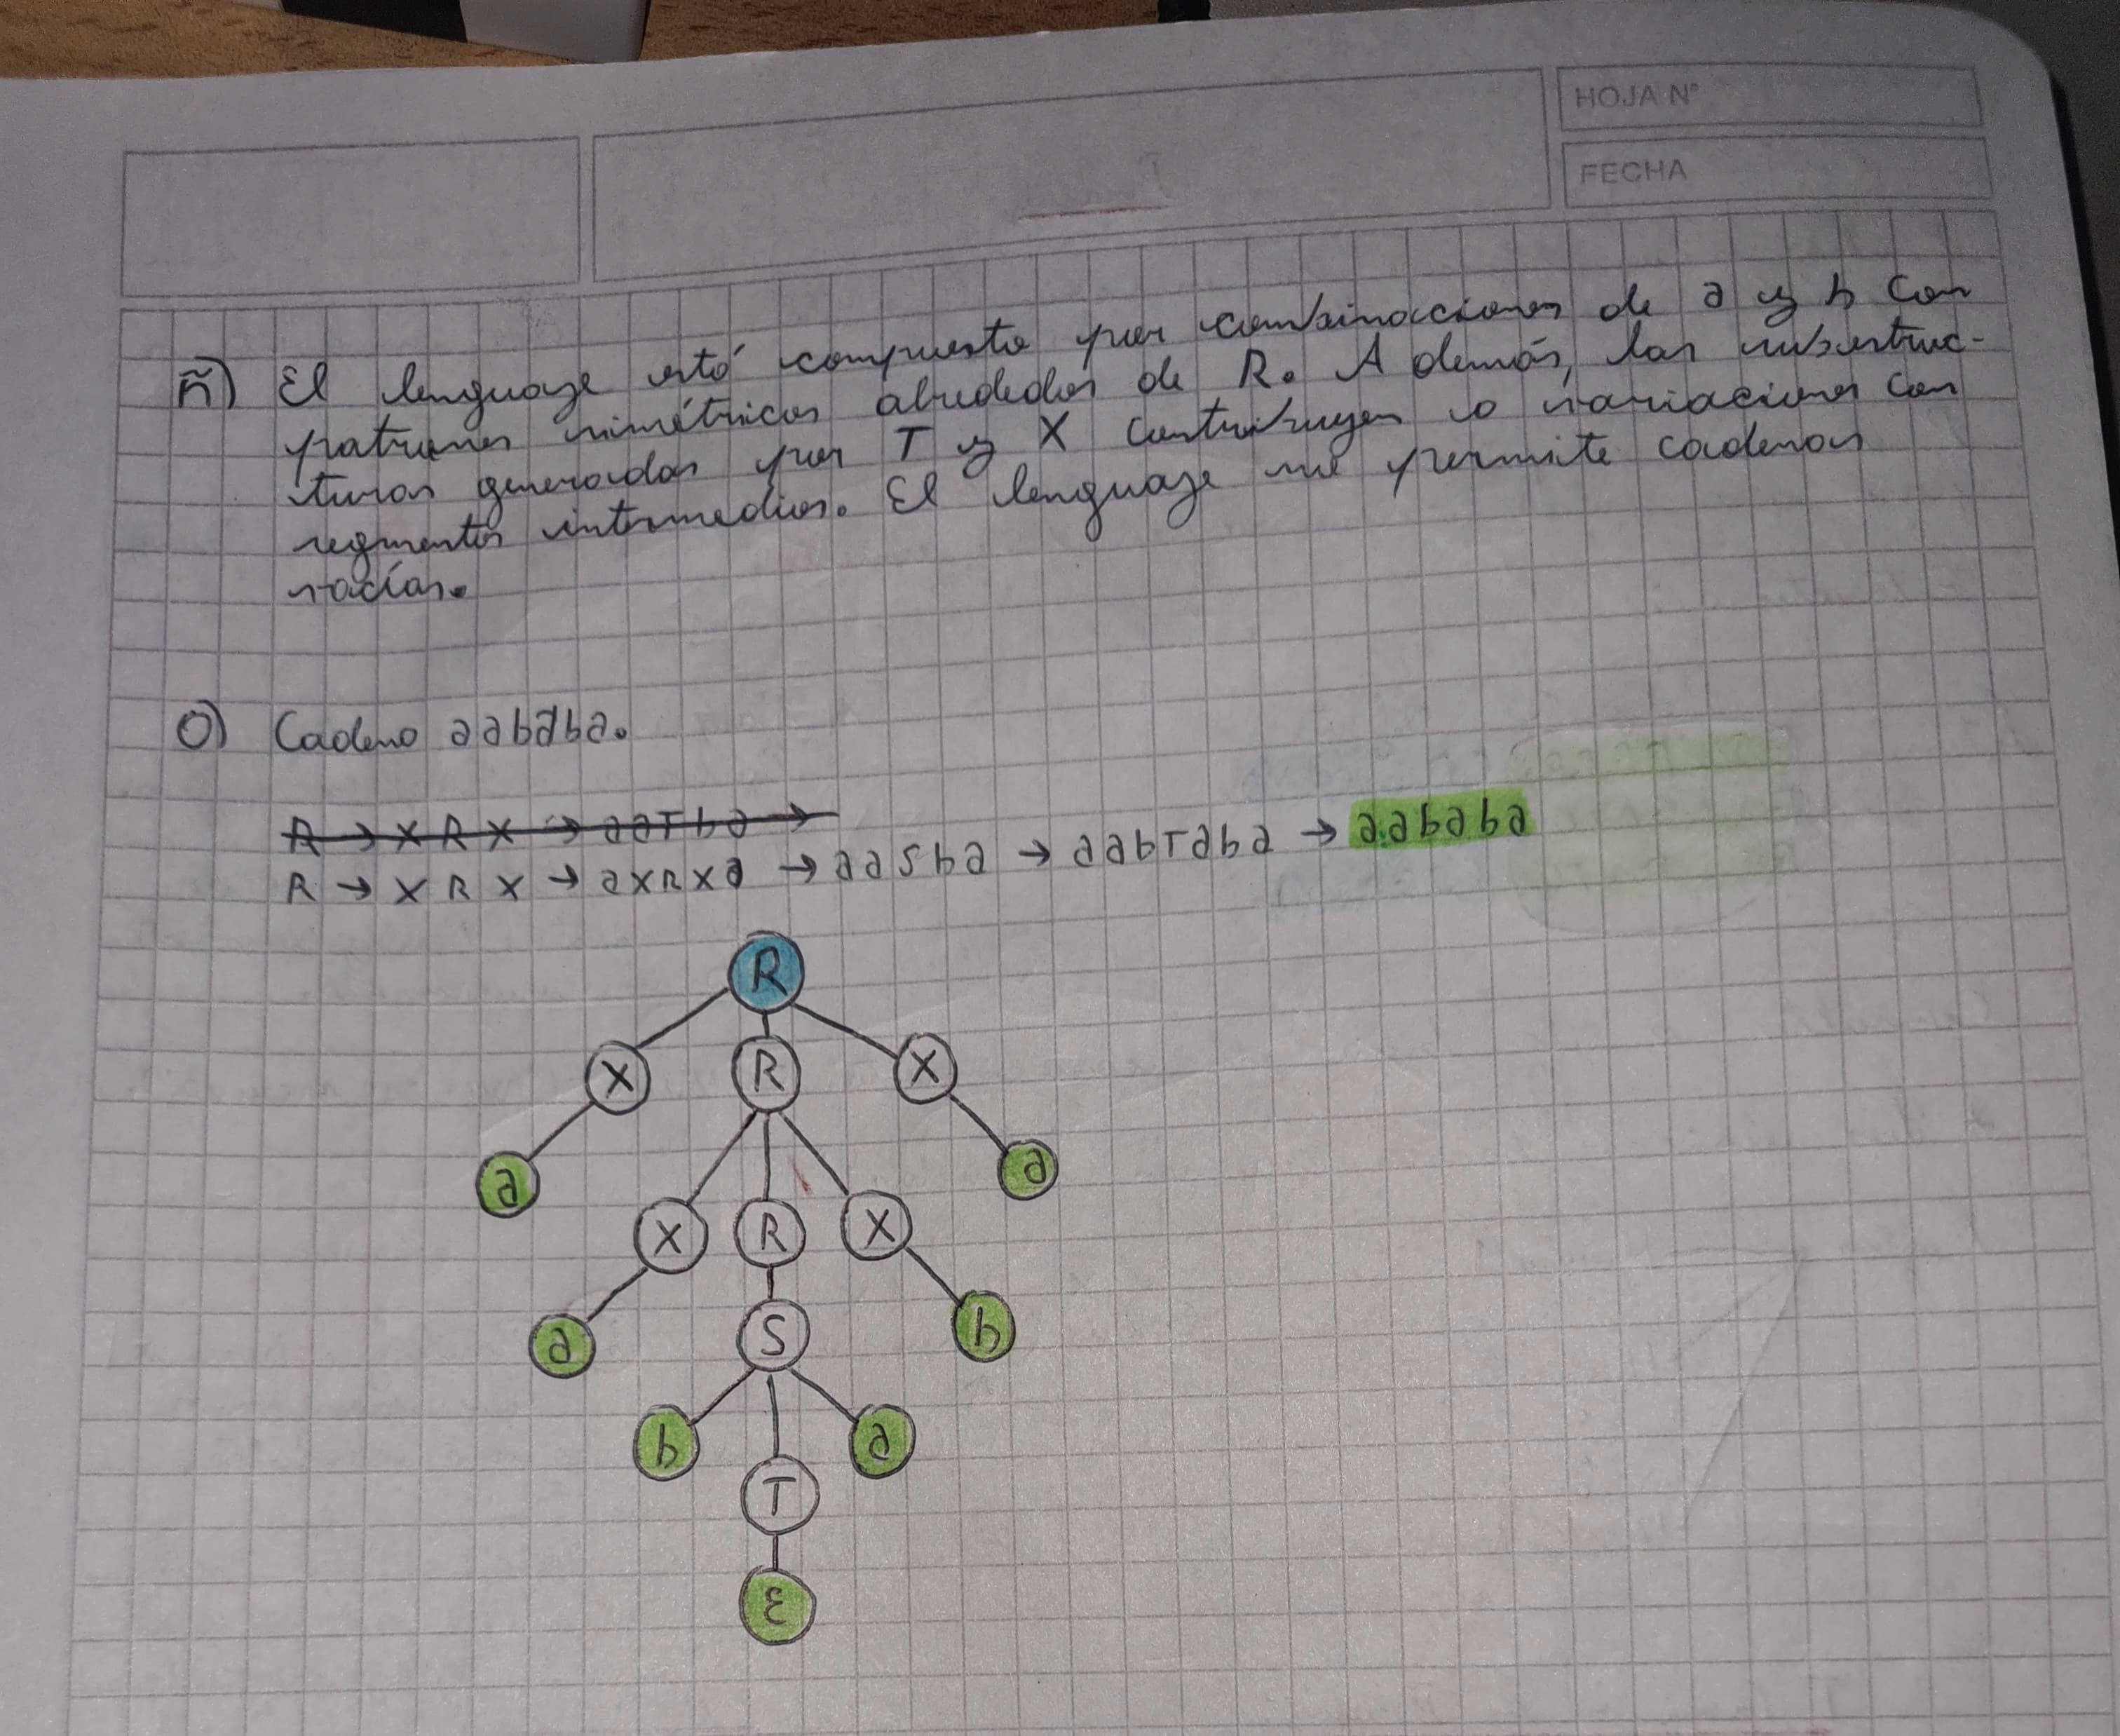 HOJA N°
FECHA
ñ) El lenguaje está compuesto por combinaciones de a y b con
patrones simétricos alrededor de R. Además, las subestruc-
turas generadas por T y X contribuyen a variaciones con
segmentos intermedios. El lenguaje no permite cadenas
vacías.
O) Cadena aababa.
R → X R X → aaTba →
R → X R X → aXRXa → aaSba → aabTaba → aababa
R
X R X
a a
X R X
a S b
b a
T
ε